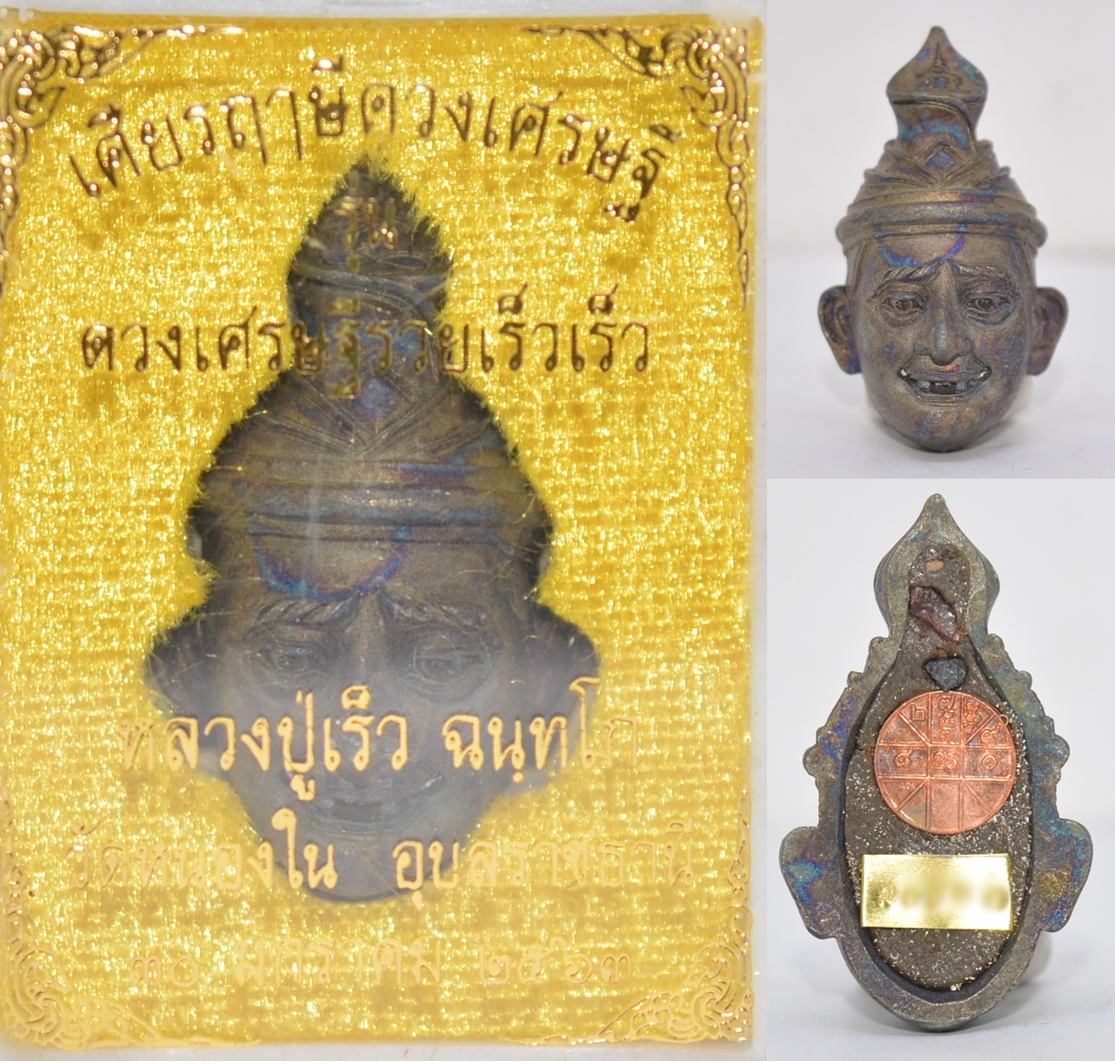 เศียรฤาษีดวงเศรษฐี
รุ่น
ดวงเศรษฐีรวยเร็วเร็ว
หลวงปู่เร็ว ฉนฺทโก
วัดหนองโน อุบลราชธานี
๓๐ มกราคม ๒๕๖๓